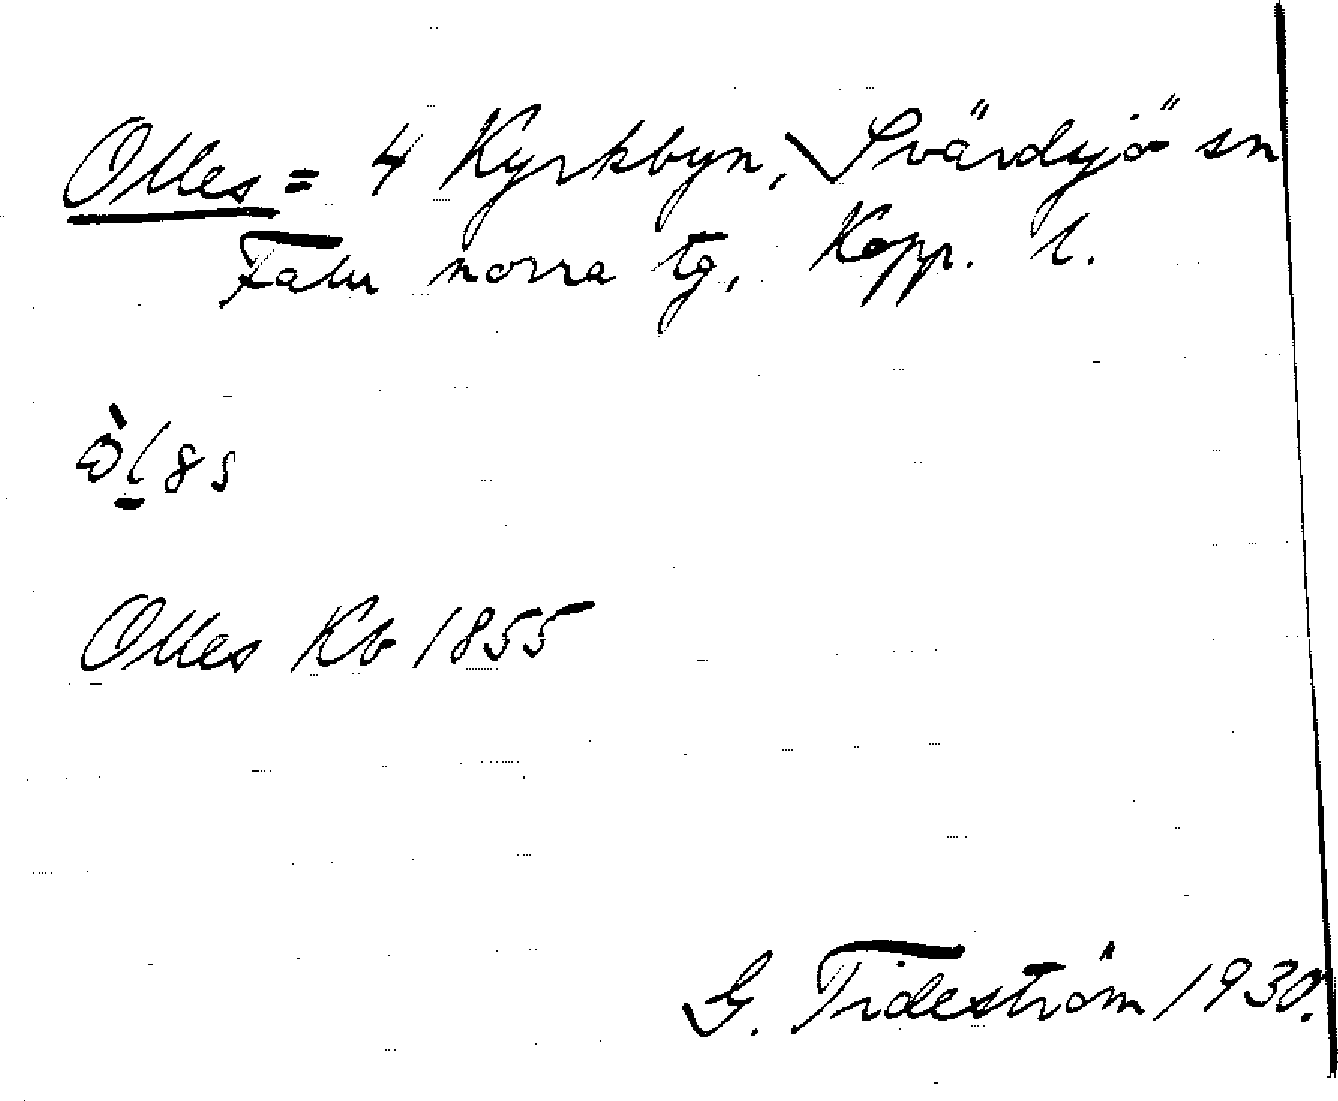 Olles = 4 Kyrkbyn, Svärdsjö sn
Falu norra tg, Kopp. l.
Olles Kb 1855
G. Tideström 1930.